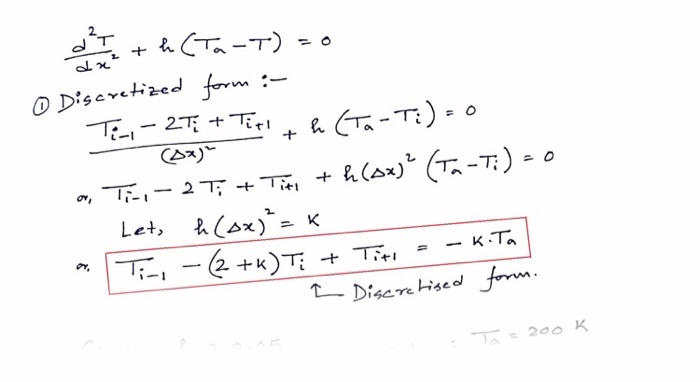 d²T/dx² + h(Ta − T) = 0
① Discretized form :−
(Ti−1 − 2Ti + Ti+1)/(Δx)² + h(Ta − Ti) = 0
or, Ti−1 − 2Ti + Ti+1 + h(Δx)² (Ta − Ti) = 0
Let, h(Δx)² = K
or, Ti−1 − (2+K)Ti + Ti+1 = − K·Ta
↑ Discretised form.
Ta = 200 K